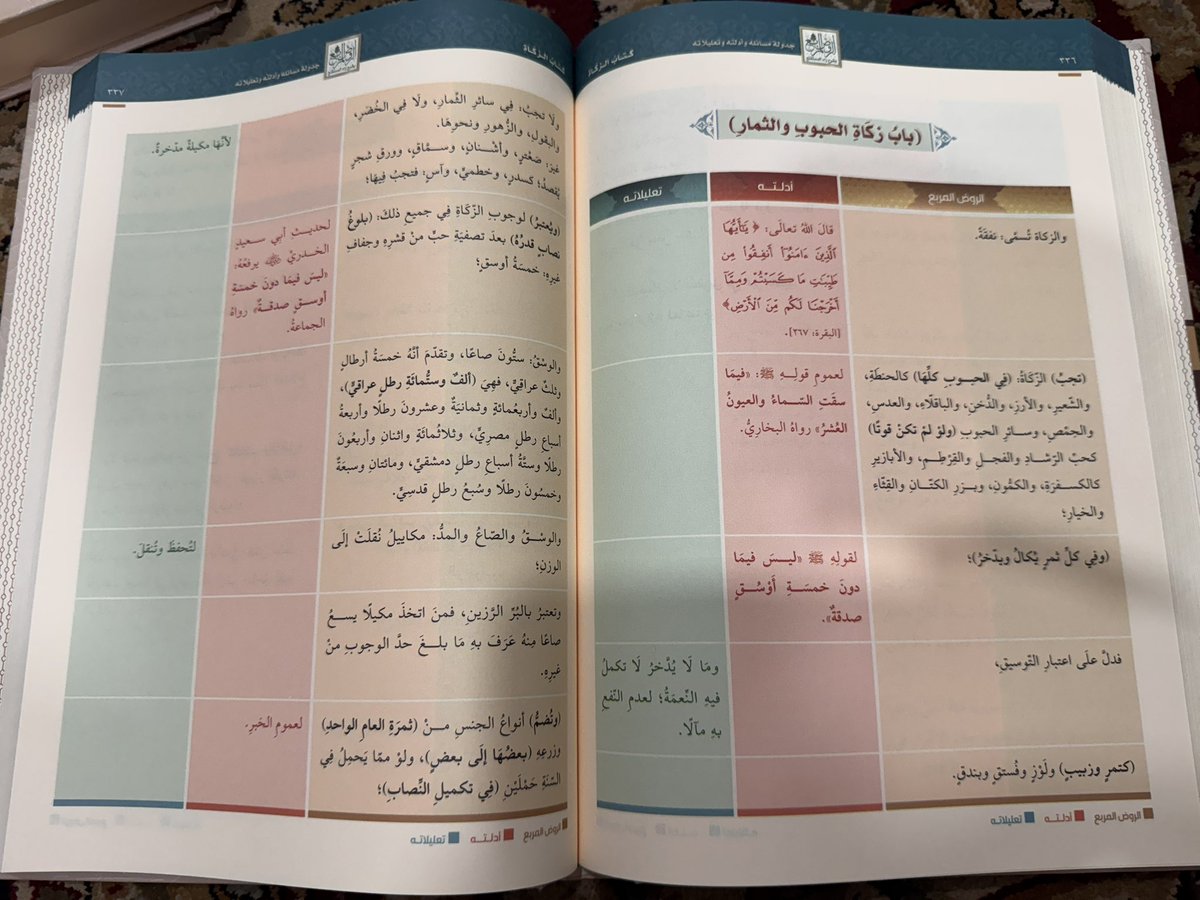 ٣٣٦
كتاب الزكاة
جدولة مسائله وأدلته وتعليلاته
(بابُ زكَاةِ الحبوبِ والثمارِ)
الروض المربع
أدلـتـه
تعليلاتـه
والزكاة تُسمَّى: نفقةً.
قالَ اللهُ تعالَى: ﴿يَٰٓأَيُّهَا
ٱلَّذِينَ ءَامَنُوٓاْ أَنفِقُواْ مِن
طَيِّبَٰتِ مَا كَسَبۡتُمۡ وَمِمَّآ
أَخۡرَجۡنَا لَكُم مِّنَ ٱلۡأَرۡضِ﴾
[البقرة: ٢٦٧].
(تجبُ) الزّكاةُ: (فِي الحبــوبِ كلِّهَا) كالحنطَةِ،
والشّعيرِ، والأرزِ، والدُّخنِ، والباقلّاءِ، والعدسِ،
والحِمّصِ، وسـائرِ الحبوبِ (ولوْ لمْ تكنْ قوتًا)
كحبِّ الرّشـادِ والفجـلِ والقِرْطِـمِ، والأبازيرِ
كالكسفرَةِ، والكمُّونِ، وبـزرِ الكتّـانِ والقِثّاءِ
والخيارِ؛
لعمومِ قولِـهِ ﷺ: «فيمَا
سقَتِ السّـماءُ والعيونُ
العُشرُ» رواهُ البخاريُّ.
(وفِي كلِّ ثمرٍ يُكالُ ويدّخرُ)؛
لقولِهِ ﷺ «ليـسَ فيمَا
دونَ خمسَــةِ أَوْسُــقٍ
صدقةٌ».
فدلَّ علَى اعتبارِ التّوسيقِ،
ومَا لَا يُدَّخرُ لَا تكملُ
فيهِ النِّعمَةُ؛ لعدمِ النّفعِ
بهِ مآلًا.
(كتمرٍ وزبيبٍ) ولَوْزٍ وفُستقٍ وبندقٍ.
الروض المربع أدلـتـه تعليلاتـه
كتاب الزكاة
جدولة مسائله وأدلته وتعليلاته
٣٣٧
ولَا تجبُ: فِي سائرِ الثِّمارِ، ولَا فِي الخُضَرِ،
والبقولِ، والزُّهورِ ونحوِهَا.
غيرَ: صَعْترٍ، وأُشْـنانٍ، وسـمَّاقٍ، وورقِ شجرٍ
يُقصدُ؛ كسدرٍ، وخطميٍّ، وآسٍ؛ فتجبُ فِيهَا؛
لأنَّهَا مكيلةٌ مدّخرةٌ.
(ويُعتبرُ) لوجوبِ الزّكَاةِ فِي جميعِ ذلكَ: (بلوغُ
نصابٍ قدرُهُ) بعدَ تصفيَةِ حبٍّ منْ قشرِهِ وجفافِ
غيرِهِ: خمسَةُ أوسقٍ؛
لحديـثِ أبِي سـعيدٍ
الخـدريِّ ﷺ يرفعُهُ:
«ليسَ فيمَا دونَ خمسَةِ
أوسـقٍ صدقـةٌ» رواهُ
الجماعةُ.
والوسْقُ: ستُّونَ صاعًا، وتقدّمَ أنَّهُ خمسَةُ أرطالٍ
وثلثٌ عراقيٌّ، فهِيَ (ألفٌ وستُّمائَةِ رطلٍ عراقيٍّ)،
وألفٌ وأربعُمائةٍ وثمانيَةٌ وعشرونَ رطلًا وأربعةُ
أسباعِ رطلٍ مصريٍّ، وثلاثُمائَةٍ واثنانِ وأربعُونَ
رطلًا وستَّةُ أسباعِ رطلٍ دمشقيٍّ، ومائتانِ وسبعَةٌ
وخمسُونَ رطلًا وسُبعُ رطلٍ قدسِيٍّ.
والوسْـــقُ والصّاعُ والمدُّ: مكاييلُ نُقلَتْ إلَى
الوزنِ؛
لتُحفظَ وتُنقلَ.
وتعتبرُ بالبُرِّ الرَّزينِ، فمنَ اتخذَ مكيلًا يســعُ
صاعًا مِنهُ عَرَفَ بهِ مَا بلــغَ حدَّ الوجوبِ منْ
غيرِهِ.
(وتُضمُّ) أنواعُ الجنسِ مــنْ (ثمرَةِ العامِ الواحدِ)
وزرعِهِ (بعضُهَا إلَى بعضٍ)، ولوْ ممّا يَحمِلُ فِي
السّنَةِ حَمْلَيْنِ (فِي تكميلِ النِّصابِ)؛
لعمومِ الخَبرِ.
الروض المربع أدلـتـه تعليلاتـه